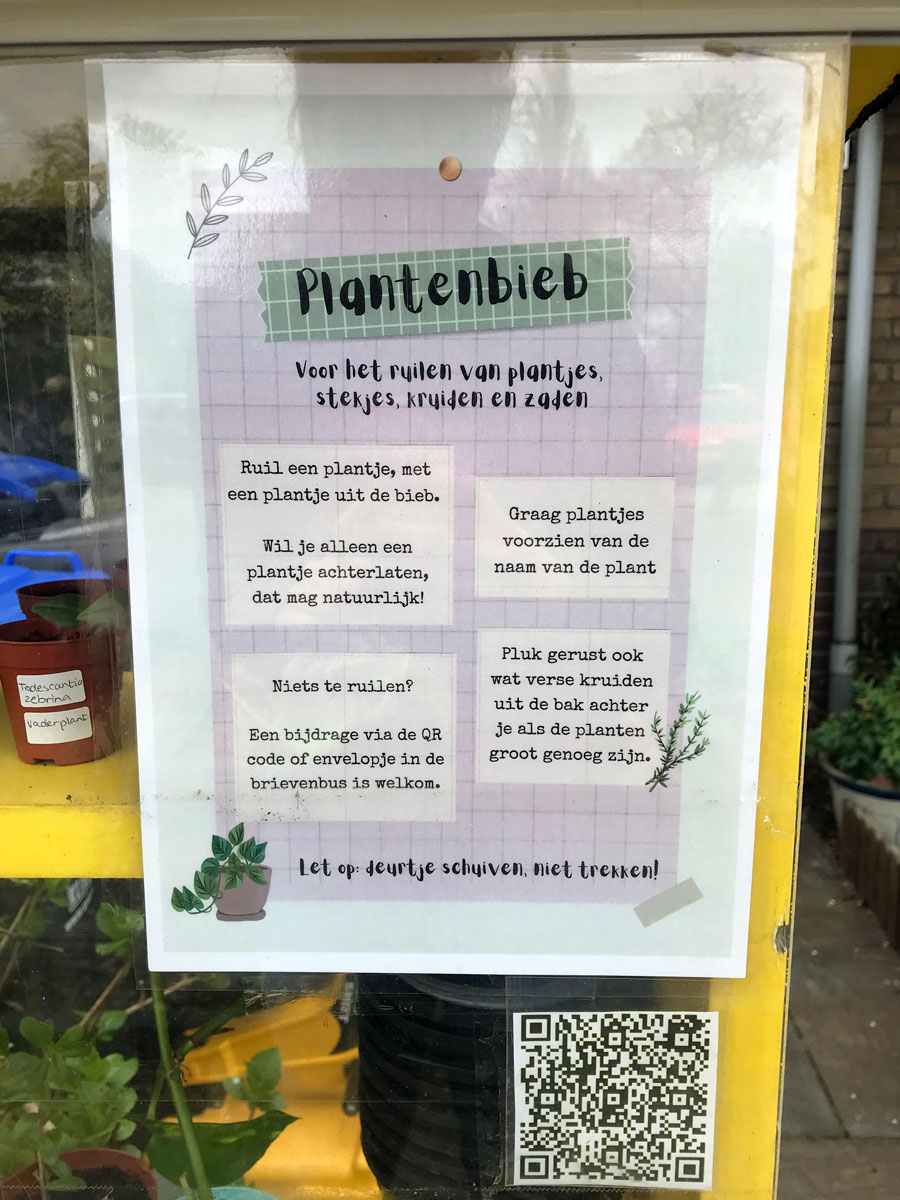 Plantenbieb
Voor het ruilen van plantjes,
stekjes, kruiden en zaden
Ruil een plantje, met
een plantje uit de bieb.
Wil je alleen een
plantje achterlaten,
dat mag natuurlijk!
Graag plantjes
voorzien van de
naam van de plant
Niets te ruilen?
Een bijdrage via de QR
code of envelopje in de
brievenbus is welkom.
Pluk gerust ook
wat verse kruiden
uit de bak achter
je als de planten
groot genoeg zijn.
Let op: deurtje schuiven, niet trekken!
Tradescantia
zebrina
Vaderplant